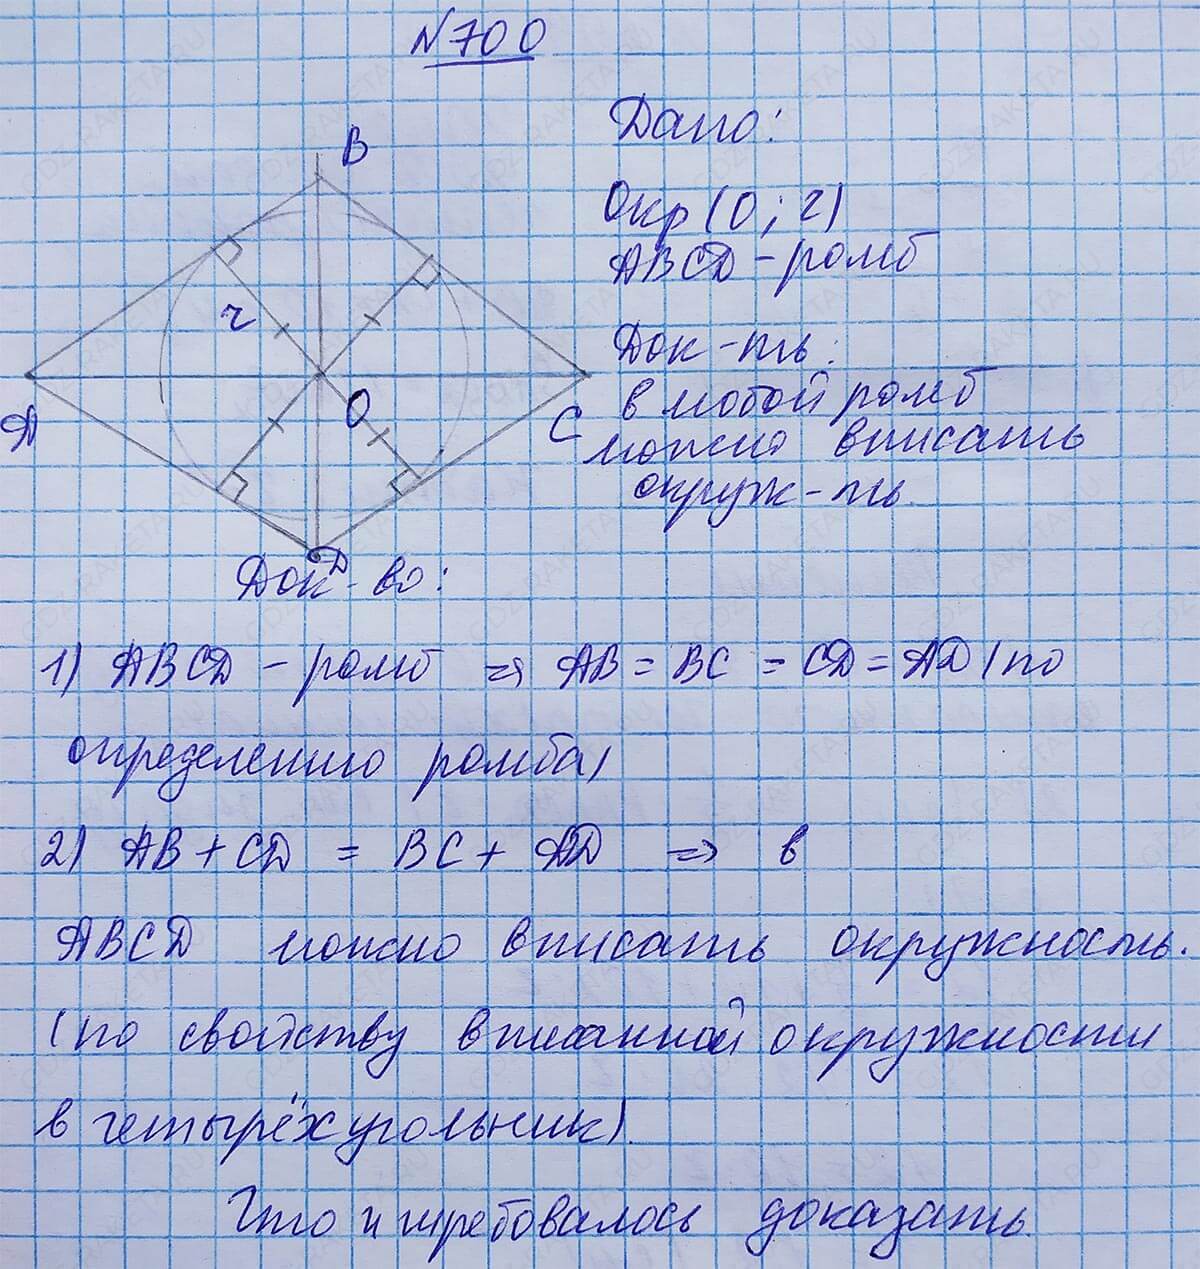 №700
B
Дано:
Окр (O; r)
ABCD - ромб
r
Док-ть:
в любой ромб
A
O
C
можно вписать
окруж-ть.
D
Док-во:
1) ABCD - ромб => AB = BC = CD = AD (по
определению ромба)
2) AB + CD = BC + AD => в
ABCD можно вписать окружность.
(по свойству вписанной окружности
в четырёхугольник).
Что и требовалось доказать.